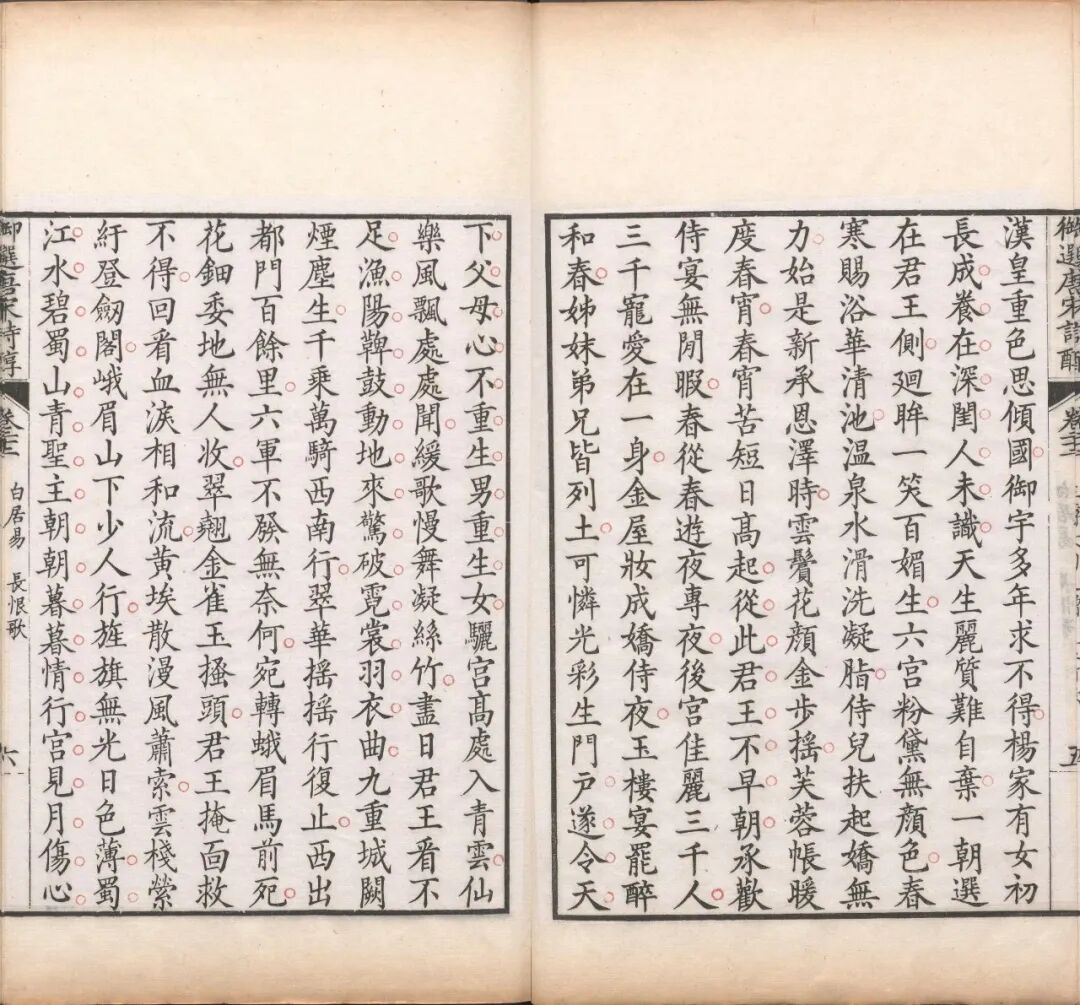 御選唐宋詩醇 卷二十二 五
漢皇重色思傾國御宇多年求不得楊家有女初
長成養在深閨人未識天生麗質難自棄一朝選
在君王側廻眸一笑百媚生六宮粉黛無顔色春
寒賜浴華清池温泉水滑洗凝脂侍兒扶起嬌無
力始是新承恩澤時雲鬢花顔金步摇芙蓉帳暖
度春宵春宵苦短日髙起從此君王不早朝承歡
侍宴無閒暇春從春遊夜專夜後宫佳麗三千人
三千寵愛在一身金屋妝成嬌侍夜玉樓宴罷醉
和春姊妹弟兄皆列土可憐光彩生門戸遂令天
下父母心不重生男重生女驪宫髙處入青雲仙
樂風飄處處聞緩歌慢舞凝絲竹盡日君王看不
足漁陽鞞鼓動地來驚破霓裳羽衣曲九重城闕
煙塵生千乘萬騎西南行翠華摇摇行復止西出
都門百餘里六軍不發無奈何宛轉蛾眉馬前死
花鈿委地無人收翠翹金雀玉搔頭君王掩面救
不得回看血淚相和流黄埃散漫風蕭索雲棧縈
紆登劒閣峨眉山下少人行旌旗無光日色薄蜀
江水碧蜀山青聖主朝朝暮暮情行宫見月傷心
御選唐宋詩醇 卷二十二 白居易 長恨歌 六